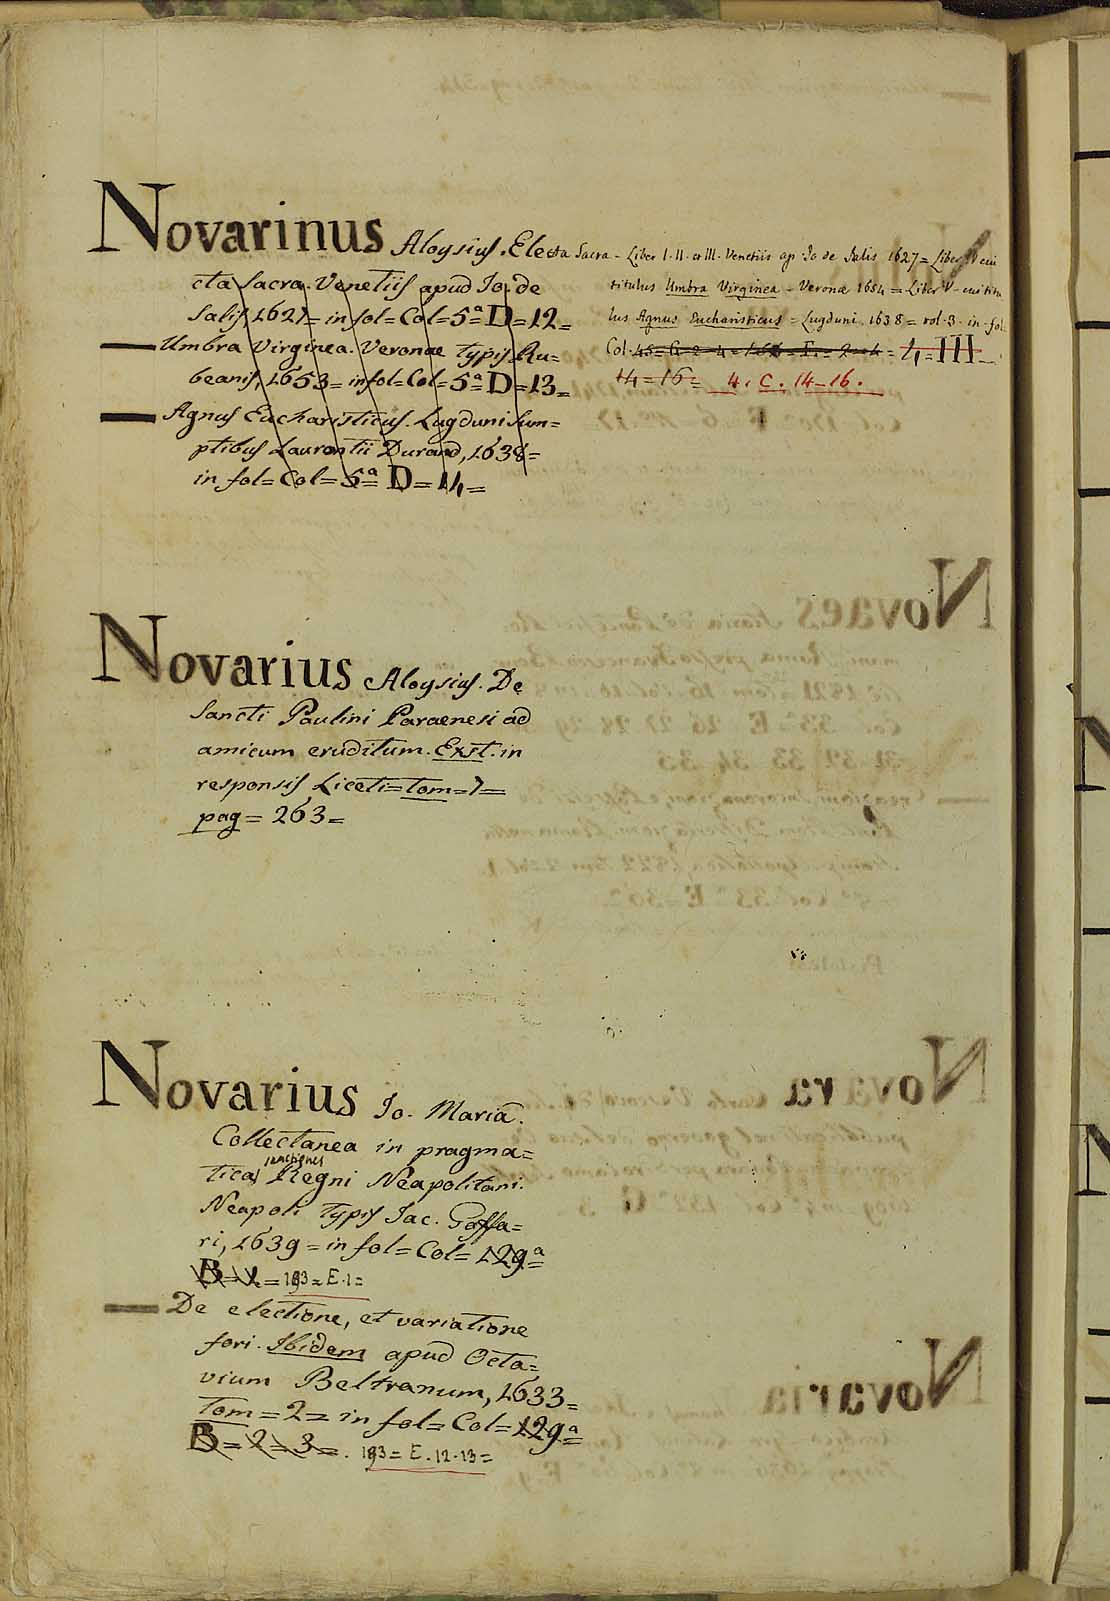 Novarinus Aloysius. Electa Sacra - Liber I. II. et III. Venetiis ap. Io de Salis 1627 = Liber IV cui
cta Sacra. Venetiis apud Io. de
titulus Umbra Virginea - Veronæ 1654 = Liber V - cui titu
Salis, 1627 = in fol = Col = 5ª D = 12 =
lus Agnus Eucharisticus = Lugduni 1638 = vol. 3. in fol.
Umbra Virginea. Veronae typis Ru=
Col. = 4 = III
beanis, 1653 = in fol = Col = 5ª D = 13 =
14 = 16 = 4. C. 14-16.
Agnus Eucharisticus. Lugduni Sum=
ptibus Laurentii Durand, 1638 =
in fol = Col = 5ª = D = 14 =
Novarius Aloysius. De
Sancti Paulini Paraenesi ad
amicum eruditum. Exst. in
responsis Liceti = tom = 7 =
pag = 263 =
Novarius Io. Maria.
Collectanea in pragma=
ticas sanctiones Regni Neapolitani.
Neapoli typis Iac. Gaffa=
ri, 1639 = in fol = Col = 129ª =
B = 1 = 193 = E. 1 =
De electione, et variatione
fori. Ibidem apud Octa=
vium Beltranum, 1633 =
Tom = 2 = in fol = Col = 129ª =
B = 2 = 3 = . 193 = E. 12. 13 =